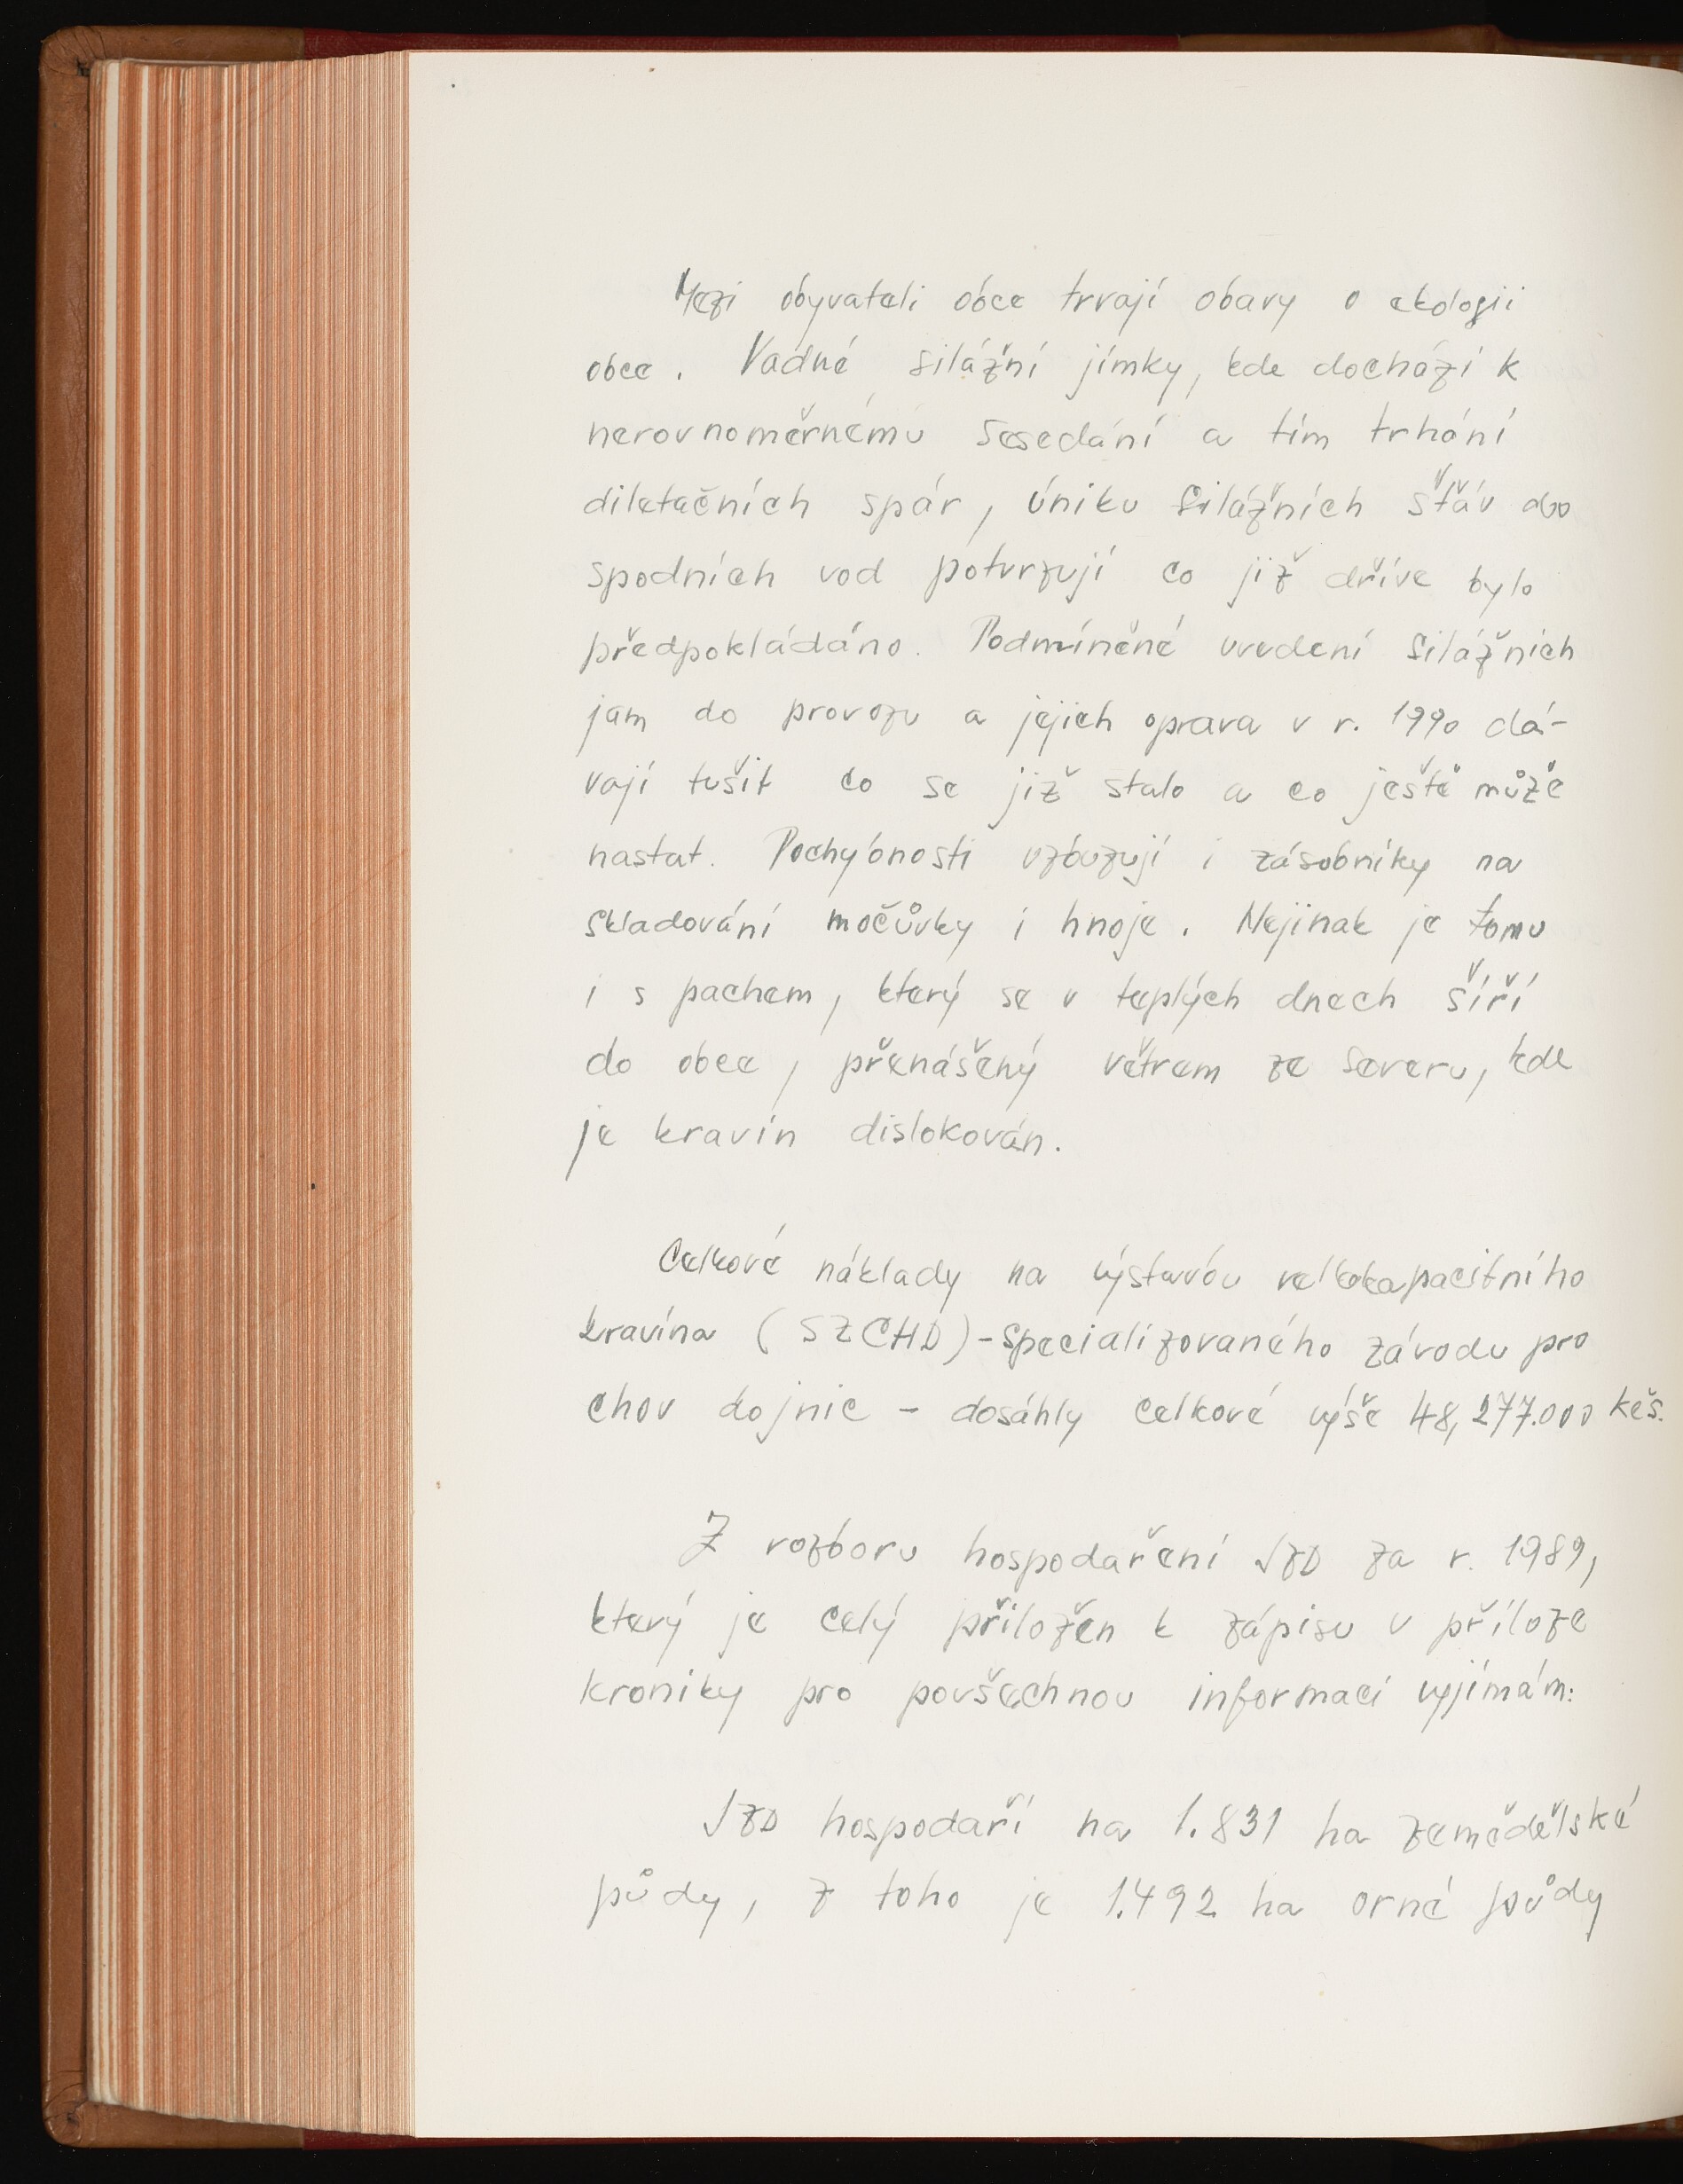 Mezi obyvateli obce trvají obavy o ekologii
obce. Vadné silážní jímky, kde dochází k
nerovnoměrnému sesedání a tím trhání
diletačních spár, úniku silážních šťáv do
spodních vod potvrzují co již dříve bylo
předpokládáno. Podmíněné uvedení silážních
jam do provozu a jejich oprava v r. 1990 dá-
vají tušit co se již stalo a co ještě může
nastat. Pochybnosti vzbuzují i zásobníky na
skladování močůvky i hnoje. Nejinak je tomu
i s pachem, který se v teplých dnech šíří
do obce, přenášený větrem ze severu, kde
je kravín dislokován.
Celkové náklady na výstavbu velkokapacitního
kravína (SZCHD)-specializovaného závodu pro
chov dojnic - dosáhly celkové výše 48,277.000 kčs.
Z rozboru hospodaření JZD za r. 1989,
který je celý přiložen k zápisu v příloze
kroniky pro povšechnou informaci vyjímám:
JZD hospodaří na 1.831 ha zemědělské
půdy, z toho je 1.492 ha orné půdy